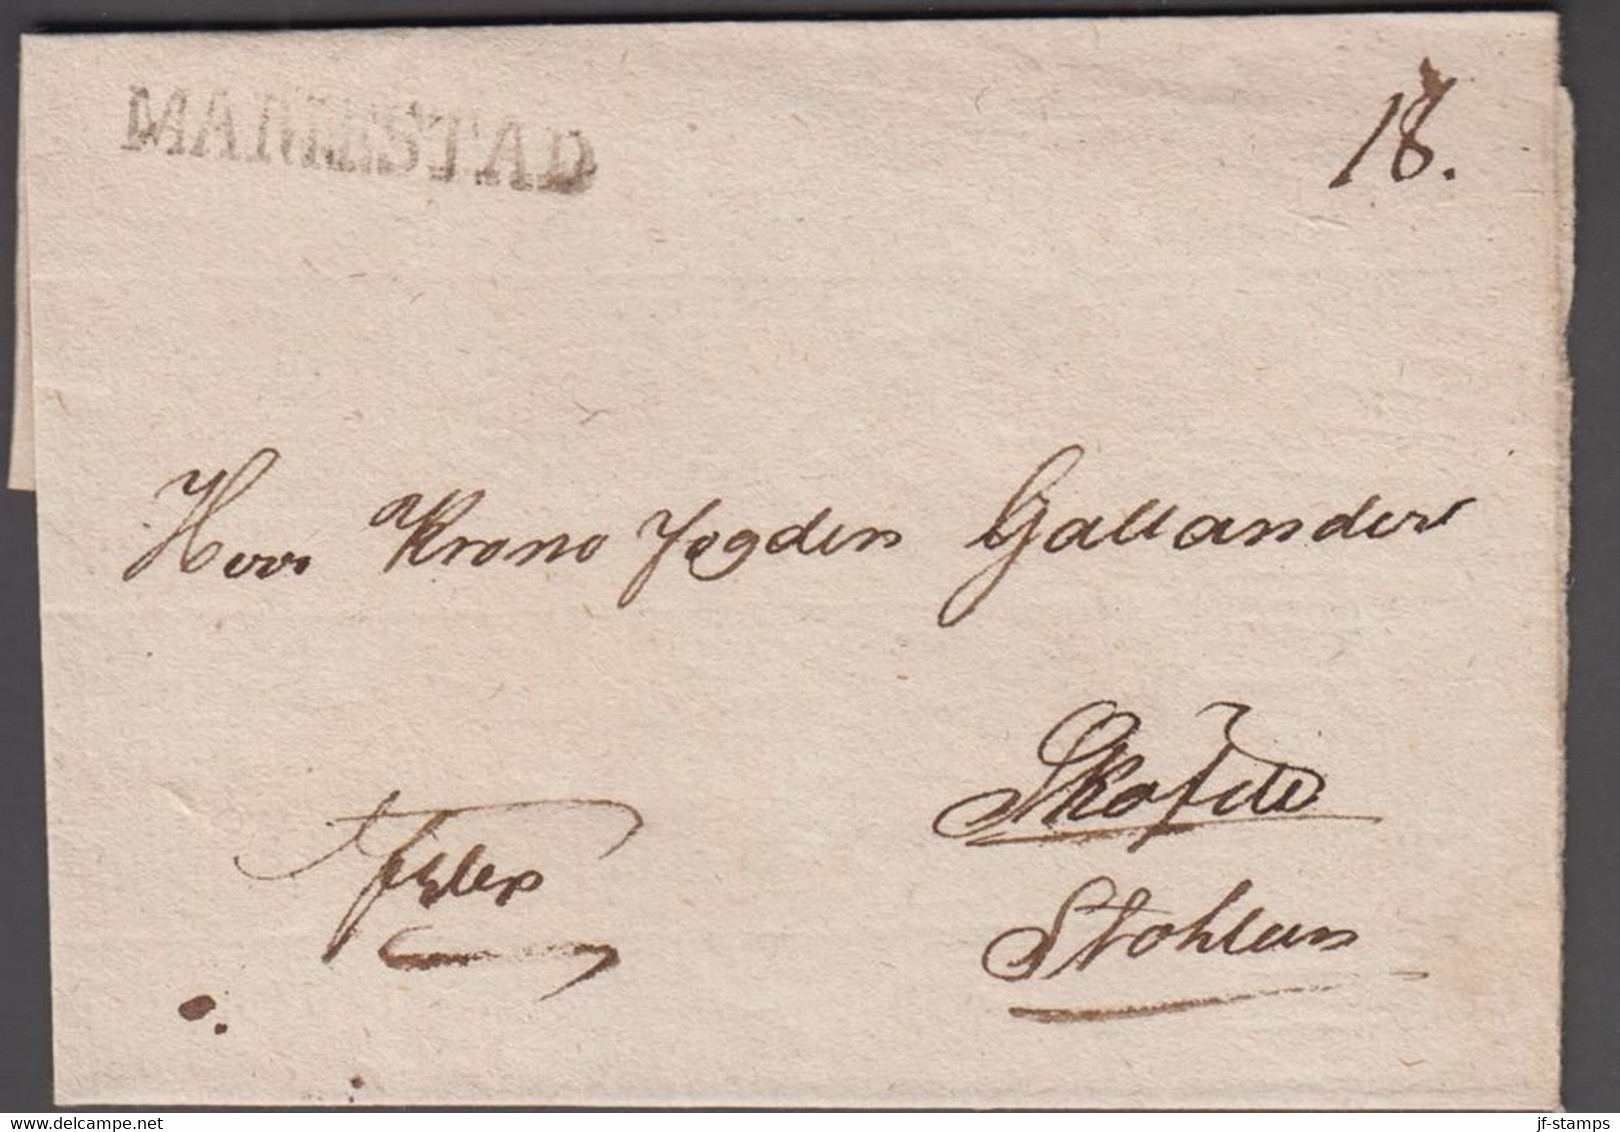 MARIESTAD
18.
Herr Krono Fogden Gallander
Skofde
Stohlan
www.delcampe.net
jf-stamps